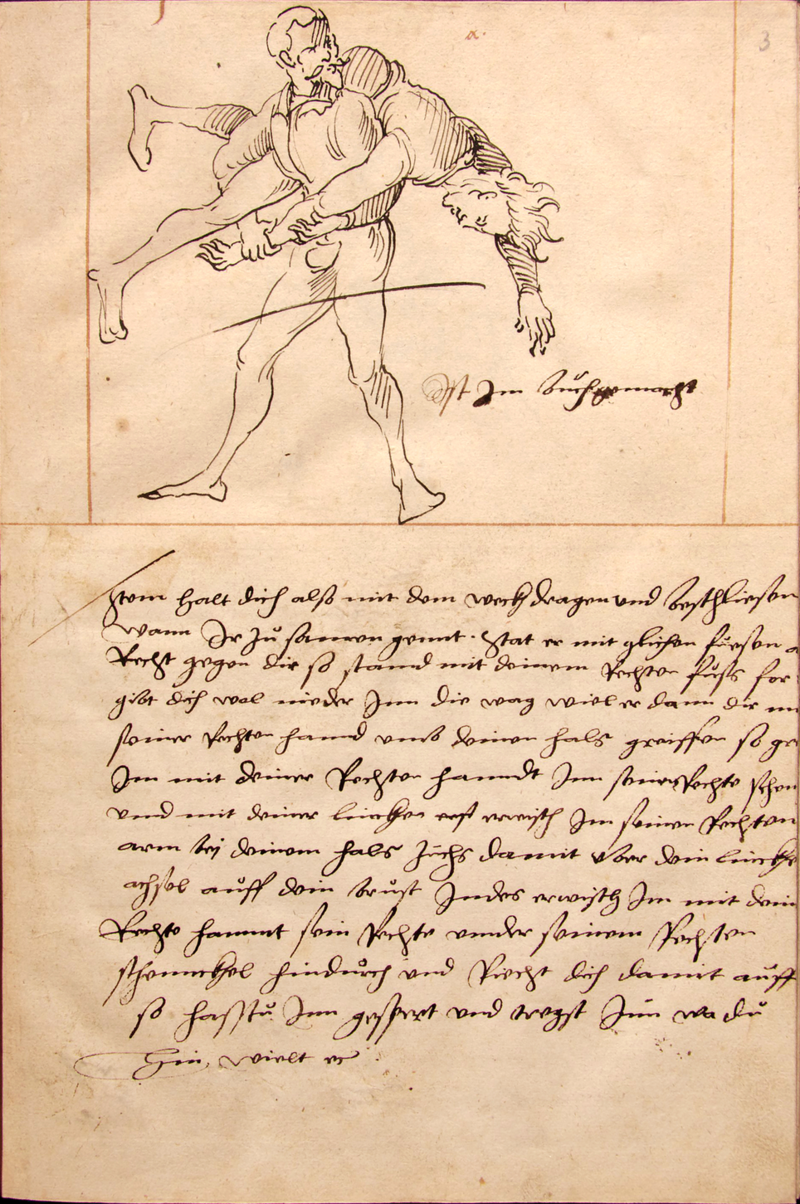 a.
3
Ist Im buch gemacht
Item halt dich also mit dem weckh dragen und beschliesen
Wann Ir zu samen gennt. Stat er mit glichen fiesen
Recht gegen dir so stannd mit deinem Rechten fuss for
gibt dich wol nieder Inn die wag wiel er dann dir
seiner Rechten hannd umb deinen hals greiffen so
Im mit deiner Rechten hanndt Inn sein Rechte
und mit deiner linckhen erst erwisch Im seinen Rechten
arm bej deinem hals Zuchs damit uber dein linckhe
achsel auff dein brust Indes erwisch Im mit dein
Rechte hannt sein Rechte unnder seinem Rechten
schennckhel hindurch und Riecht dich damit auff
so hasstu Inn gespert und tregst Inn wa du
Hin, wielt